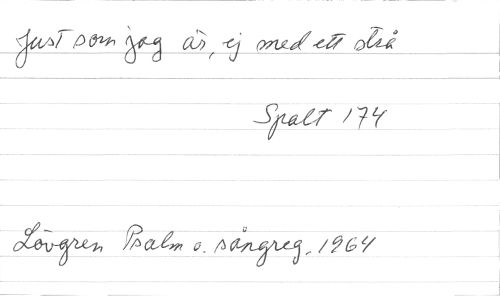 Just som jag är, ej med ett strå
Spalt 174
Lövgren Psalm o. sångreg. 1964